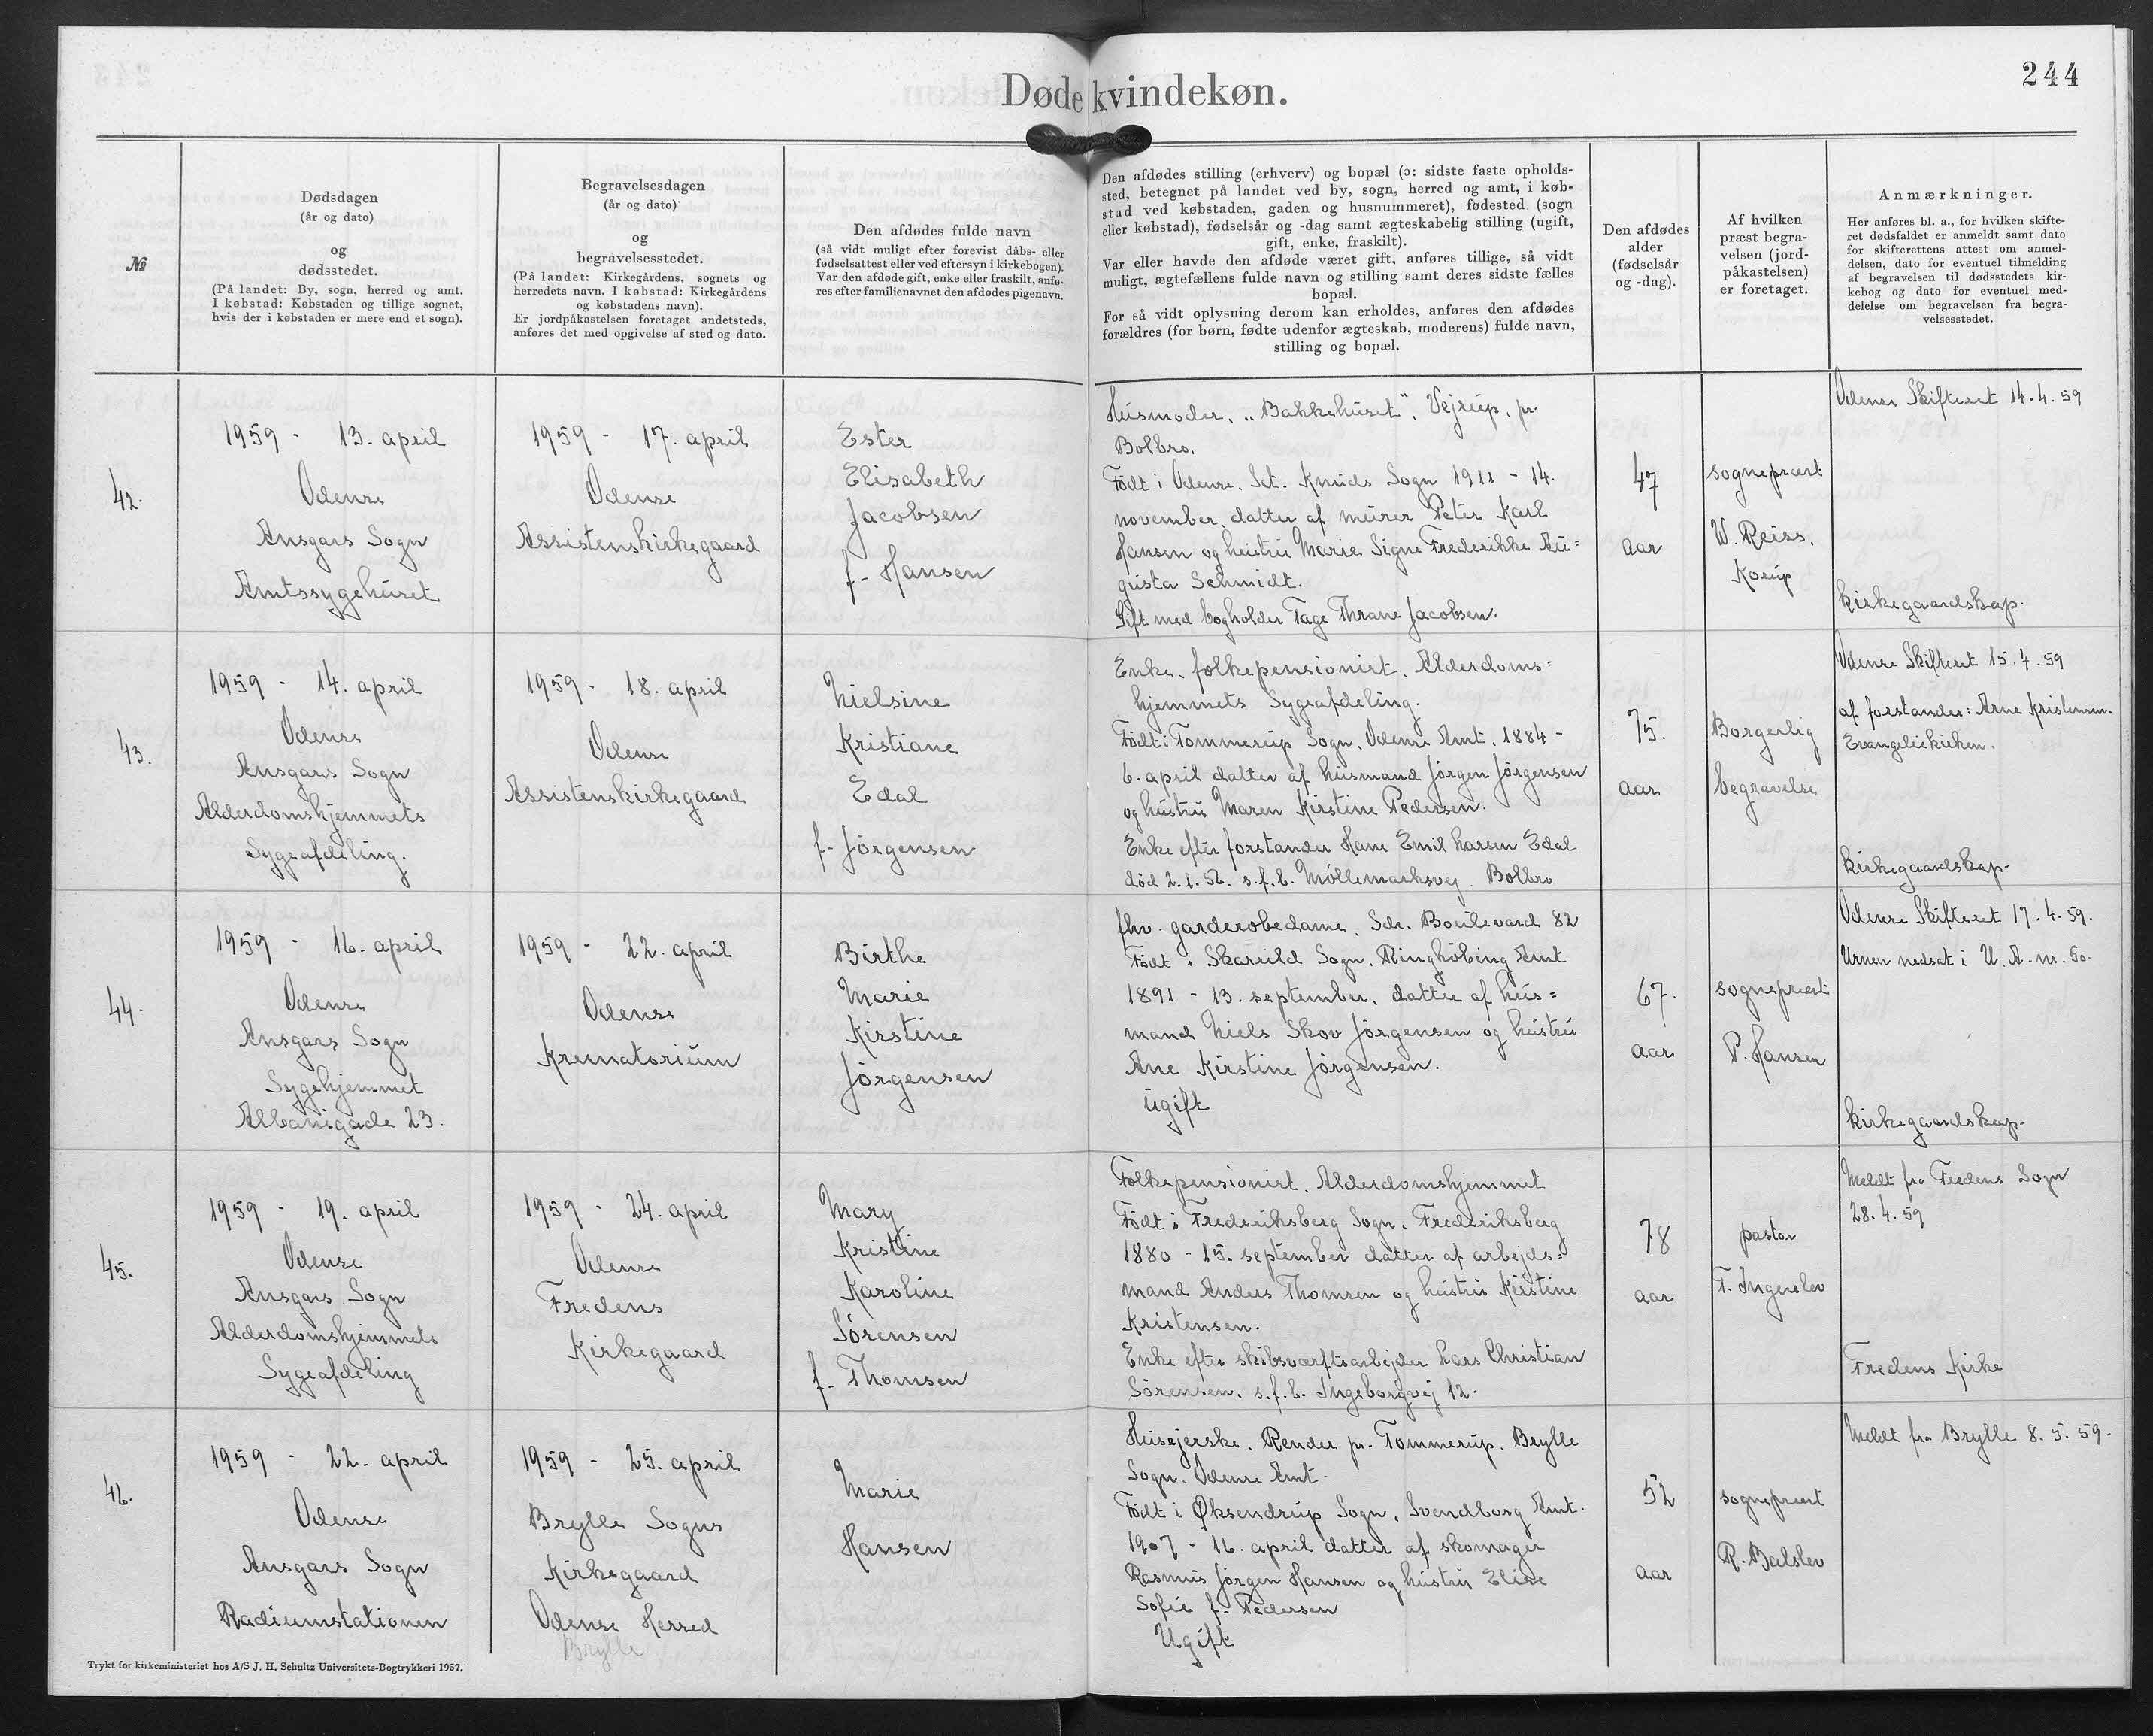 244
Døde kvindekøn.
№
Dødsdagen
(år og dato)
og
dødsstedet.
(På landet: By, sogn, herred og amt.
I købstad: Købstaden og tillige sognet,
hvis der i købstaden er mere end et sogn).
Begravelsesdagen
(år og dato)
og
begravelsesstedet.
(På landet: Kirkegårdens, sognets og
herredets navn. I købstad: Kirkegårdens
og købstadens navn).
Er jordpåkastelsen foretaget andetsteds,
anføres det med opgivelse af sted og dato.
Den afdødes fulde navn
(så vidt muligt efter forevist dåbs- eller
fødselsattest eller ved eftersyn i kirkebogen).
Var den afdøde gift, enke eller fraskilt, anfø-
res efter familienavnet den afdødes pigenavn.
Den afdødes stilling (erhverv) og bopæl (ɔ: sidste faste opholds-
sted, betegnet på landet ved by, sogn, herred og amt, i køb-
stad ved købstaden, gaden og husnummeret), fødested (sogn
eller købstad), fødselsår og -dag samt ægteskabelig stilling (ugift,
gift, enke, fraskilt).
Var eller havde den afdøde været gift, anføres tillige, så vidt
muligt, ægtefællens fulde navn og stilling samt deres sidste fælles
bopæl.
For så vidt oplysning derom kan erholdes, anføres den afdødes
forældres (for børn, fødte udenfor ægteskab, moderens) fulde navn,
stilling og bopæl.
Den afdødes
alder
(fødselsår
og -dag).
Af hvilken
præst begra-
velsen (jord-
påkastelsen)
er foretaget.
Anmærkninger.
Her anføres bl. a., for hvilken skifte-
ret dødsfaldet er anmeldt samt dato
for skifterettens attest om anmel-
delsen, dato for eventuel tilmelding
af begravelsen til dødsstedets kir-
kebog og dato for eventuel med-
delelse om begravelsen fra begra-
velsesstedet.
42.
1959 - 13. april
Odense
Ansgars Sogn
Amtssygehuset
1959 - 17. april
Odense
Assistenskirkegaard
Ester
Elisabeth
Jacobsen
f. Hansen
Husmoder, "Bakkehuset", Vejrup, pr.
Bolbro.
Født i Odense. Sct. Knuds Sogn 1911 - 14.
november, datter af murer Peter Karl
Hansen og hustru Marie Signe Frederikke Au=
gusta Schmidt.
Gift med bogholder Tage Thrane Jacobsen.
47
aar
sognepræst
W. Reiss.
Korup
Odense Skifteret 14.4.59
Kirkegaardskap.
43.
1959 - 14. april
Odense
Ansgars Sogn
Alderdomshjemmets
Sygeafdeling.
1959 - 18. april
Odense
Assistenskirkegaard
Nielsine
Kristiane
Edal
f. Jørgensen
Enke, folkepensionist, Alderdoms=
hjemmets Sygeafdeling.
Født i Tommerup Sogn, Odense Amt. 1884 -
6. april datter af husmand Jørgen Jørgensen
og hustru Maren Kirstine Pedersen.
Enke efter forstander Hans Emil Larsen Edal
død 2.1.56. s.f.b. Møllemarksvej. Bolbro
75.
aar
Borgerlig
begravelse
Odense Skifteret 15.4.59
af forstander: Arne Kristensen.
Evangeliekirken.
Kirkegaardskap.
44.
1959 - 16. april
Odense
Ansgars Sogn
Sygehjemmet
Albanigade 23.
1959 - 22. april
Odense
Krematorium
Birthe
Marie
Kirstine
Jørgensen
fhv. garderobedame, Sdr. Boulevard 82
Født i Skarrild Sogn, Ringkøbing Amt
1891 - 13. september, datter af hus=
mand Niels Skov Jørgensen og hustru
Ane Kirstine Jørgensen.
ugift
67.
aar
sognepræst
P. Hansen
Odense Skifteret 17.4.59.
Urnen nedsat i U. A. nr. 50.
Kirkegaardskap.
45.
1959 - 19. april
Odense
Ansgars Sogn
Alderdomshjemmets
Sygeafdeling
1959 - 24. april
Odense
Fredens
Kirkegaard
Mary
Kristine
Karoline
Sørensen
f. Thomsen
Folkepensionist, Alderdomshjemmet
Født i Frederiksberg Sogn, Frederiksberg
1880 - 15. september datter af arbejds=
mand Anders Thomsen og hustru Kirstine
Kristensen.
Enke efter skibsværftsarbejder Lars Christian
Sørensen. s.f.b. Ingeborgvej 12.
78
aar
pastor
T. Ingerslev
Meldt fra Fredens Sogn
28.4.59
Fredens Kirke
46.
1959 - 22. april
Odense
Ansgars Sogn
Radiumstationen
1959 - 25. april
Brylle Sogns
Kirkegaard
Odense Herred
Brylle
Marie
Hansen
Husejerske, Render pr. Tommerup. Brylle
Sogn. Odense Amt.
Født i Øksendrup Sogn, Svendborg Amt.
1907 - 16. april datter af skomager
Rasmus Jørgen Hansen og hustru Elise
Sofie f. Pedersen
Ugift
52
aar
sognepræst
R. Balslev
Meldt fra Brylle 8.5.59.
Trykt for kirkeministeriet hos A/S J. H. Schultz Universitets-Bogtrykkeri 1957.